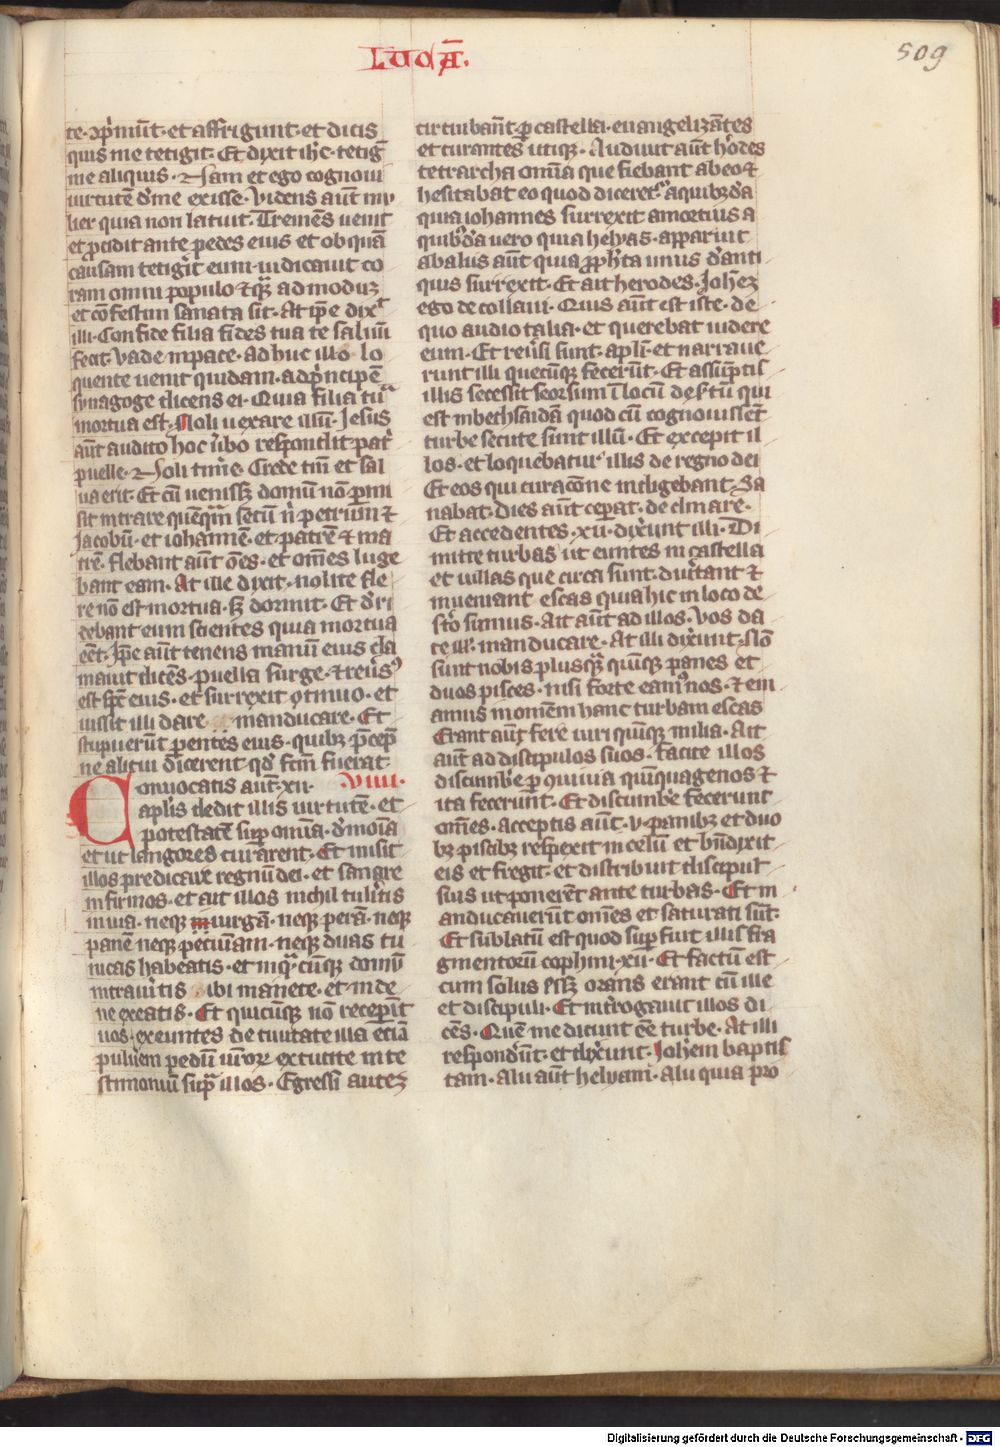 LUCĀ.
509
te. ꝯp̄mūt. et affrigunt. et dicis
quis me tetigit. Et dixit ihc̄. tetig̅
me aliquis. Nam et ego cognoui
uirtutē de me exisse. Videns aūt mu
lier quia non latuit. Tremēs uenit
et ꝓcidit ante pedes eius et ob quā
causam tetig̅it eum. indicauit co
ram omni populo ⁊ q̄ admoduꝫ
et cōfestim sanata sit. At ip̄e dix᷑
illi. Confide filia fides tua te saluū
fecit. Vade in pace. adhuc illo lo
quente uenit quidam. a p̄ncipē
synagoge dicens ei. Quia filia tu᷑
mortua est. Noli uexare illū. Jesus
aūt audito hoc u̅bo respondit pat᷑
puelle. Noli tim̅e. Crede tm̅ et sal
ua erit. Et cū uenissꝫ domū nō ꝑmi
sit intrare quēqm̄ secū n̄ petrum ⁊
Jacobū. et iohannē. et patrē ⁊ ma
trē. flebant aūt oēs. et om̄es luge
bant eam. At ille dixit. nolite fle
re nō est mortua. sꝫ dormit. Et deri
debant eum scientes quia mortua
eēt. Ip̄e aūt tenens manū eius cla
mauit dicēs. puella surge. ⁊ reu̅sꝰ
est sp̄c eius. et surrexit ꝯtinuo. et
iussit illi dare manducare. Et
stupuerūt ꝑentes eius. quibꝫ p̄cep̄
ne alicui dicerent qd̄ fcm̄ fuerat
Conuocatis aūt. xii. VIIII.
apl̄is dedit illis uirtutē. et
potestatē suꝑ om̄ia demoīa
et ut langores curarent. Et misit
illos predicare regnū dei. et sanare
infirmos. et ait illos nichil tulitis
in uia. neqꝫ in uirgā. neqꝫ perā. neqꝫ
panē neqꝫ pecuniam. neqꝫ duas tu
nicas habeatis. et in q̄cūqꝫ domū
intrau̅itis ibi manete. et inde
ne exeatis. Et quicūqꝫ nō recep̅it
uos. exeuntes de ciuitate illa etiā
pulu̅em pedū ur̄oꝝ excutite in te
stimoniū sup̄ illos. Egressi auteꝫ
circuibant. ꝑ castella. euangelizātes
et curantes utiqꝫ. Audiuit aūt h̅odes
tetrarcha om̄ia que fiebant ab eo ⁊
hesitabat eo quod diceret᷑ a quibꝫda
quia iohannes surrexit a mortuis a
quibꝰda uero quia helyas. apparuit
ab aliis aūt quia ꝓph̄ta unus de anti
quis surrexit. Et ait herodes. Joh̄eꝫ
ego decollaui. Quis aūt est iste. de
quo audio talia. et querebat uidere
eum. Et reu̅si sunt. apl̄i. et narraue
runt illi quecūqꝫ fecerūt. Et assūptis
illis secessit seorsum ī locū desertū qui
est in bethsaidā quod cū cognouissēt
turbe secute sunt illū. Et excepit il
los. et loquebatur illis de regno dei
Et eos qui curacōne indigebant. Sa
nabat. dies aūt ceperat. declinare.
Et accedentes. xii. dixunt illi. Di
mitte turbas ut euntes in castella
et uillas que circa sunt. diu̅tant ⁊
inueniant escas quia hic in loco de
sto sumus. Ait aūt ad illos. Vos da
te ill̄. manducare. At illi dixunt. Nō
sunt nobis plusq̄ quīqꝫ panes et
duos pisces. nisi forte eamꝰ nos. ⁊ em
amus in om̄em hanc turbam escas
Erant autꝫ fere uiri quīqꝫ milia. Ait
aūt ad discipulos suos. facite illos
discumb̅e ꝑ ꝯuiuia quīquagenos ⁊
ita fecerunt. Et discumb̅e fecerunt
om̄es. acceptis aūt. v. panibꝫ et duo
bꝫ piscibꝫ respexit in celū et bn̄dixit
eis et fregit. et distribuit discipul
suis ut ponerēt ante turbas. Et m
anducauerūt om̄es et saturati sūt.
Et sublatū est quod suꝑfuit illis fra
gmentorū cophini. xii. Et factū est
cum solus essꝫ orans erant cū ille
et discipuli. Et int̅rogauit illos di
cēs. Quē me dicunt eē turbe. At illi
respond̅ūt. et dixunt. Joh̄em baptis
tam. Alii aūt helyam. Alii quia pro
Digitalisierung gefördert durch die Deutsche Forschungsgemeinschaft - DFG